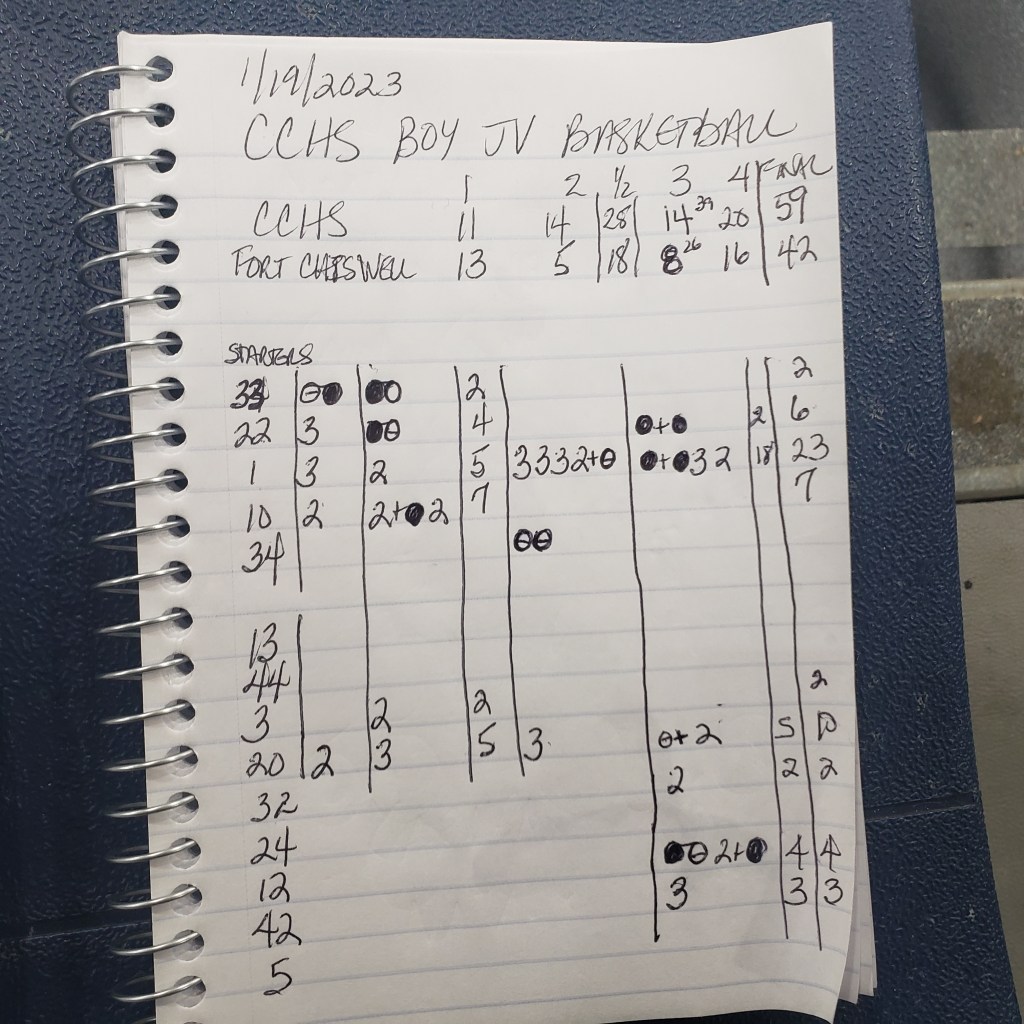 1/19/2023
CCHS BOY JV BASKETBALL
1 2 1/2 3 4 FINAL
CCHS 11 14 28 14 39 20 59
FORT CHISWELL 13 5 18 8 26 16 42
STARTERS
2
2
22 3 4 + 2 6
1 3 2 5 3332+ + 32 18 23
10 2 2+ 2 7 7
34
13
44 2
3 2 2
20 2 3 5 3 + 2 5 10
2 2 2
32
24 2+ 4 4
12 3 3 3
42
5